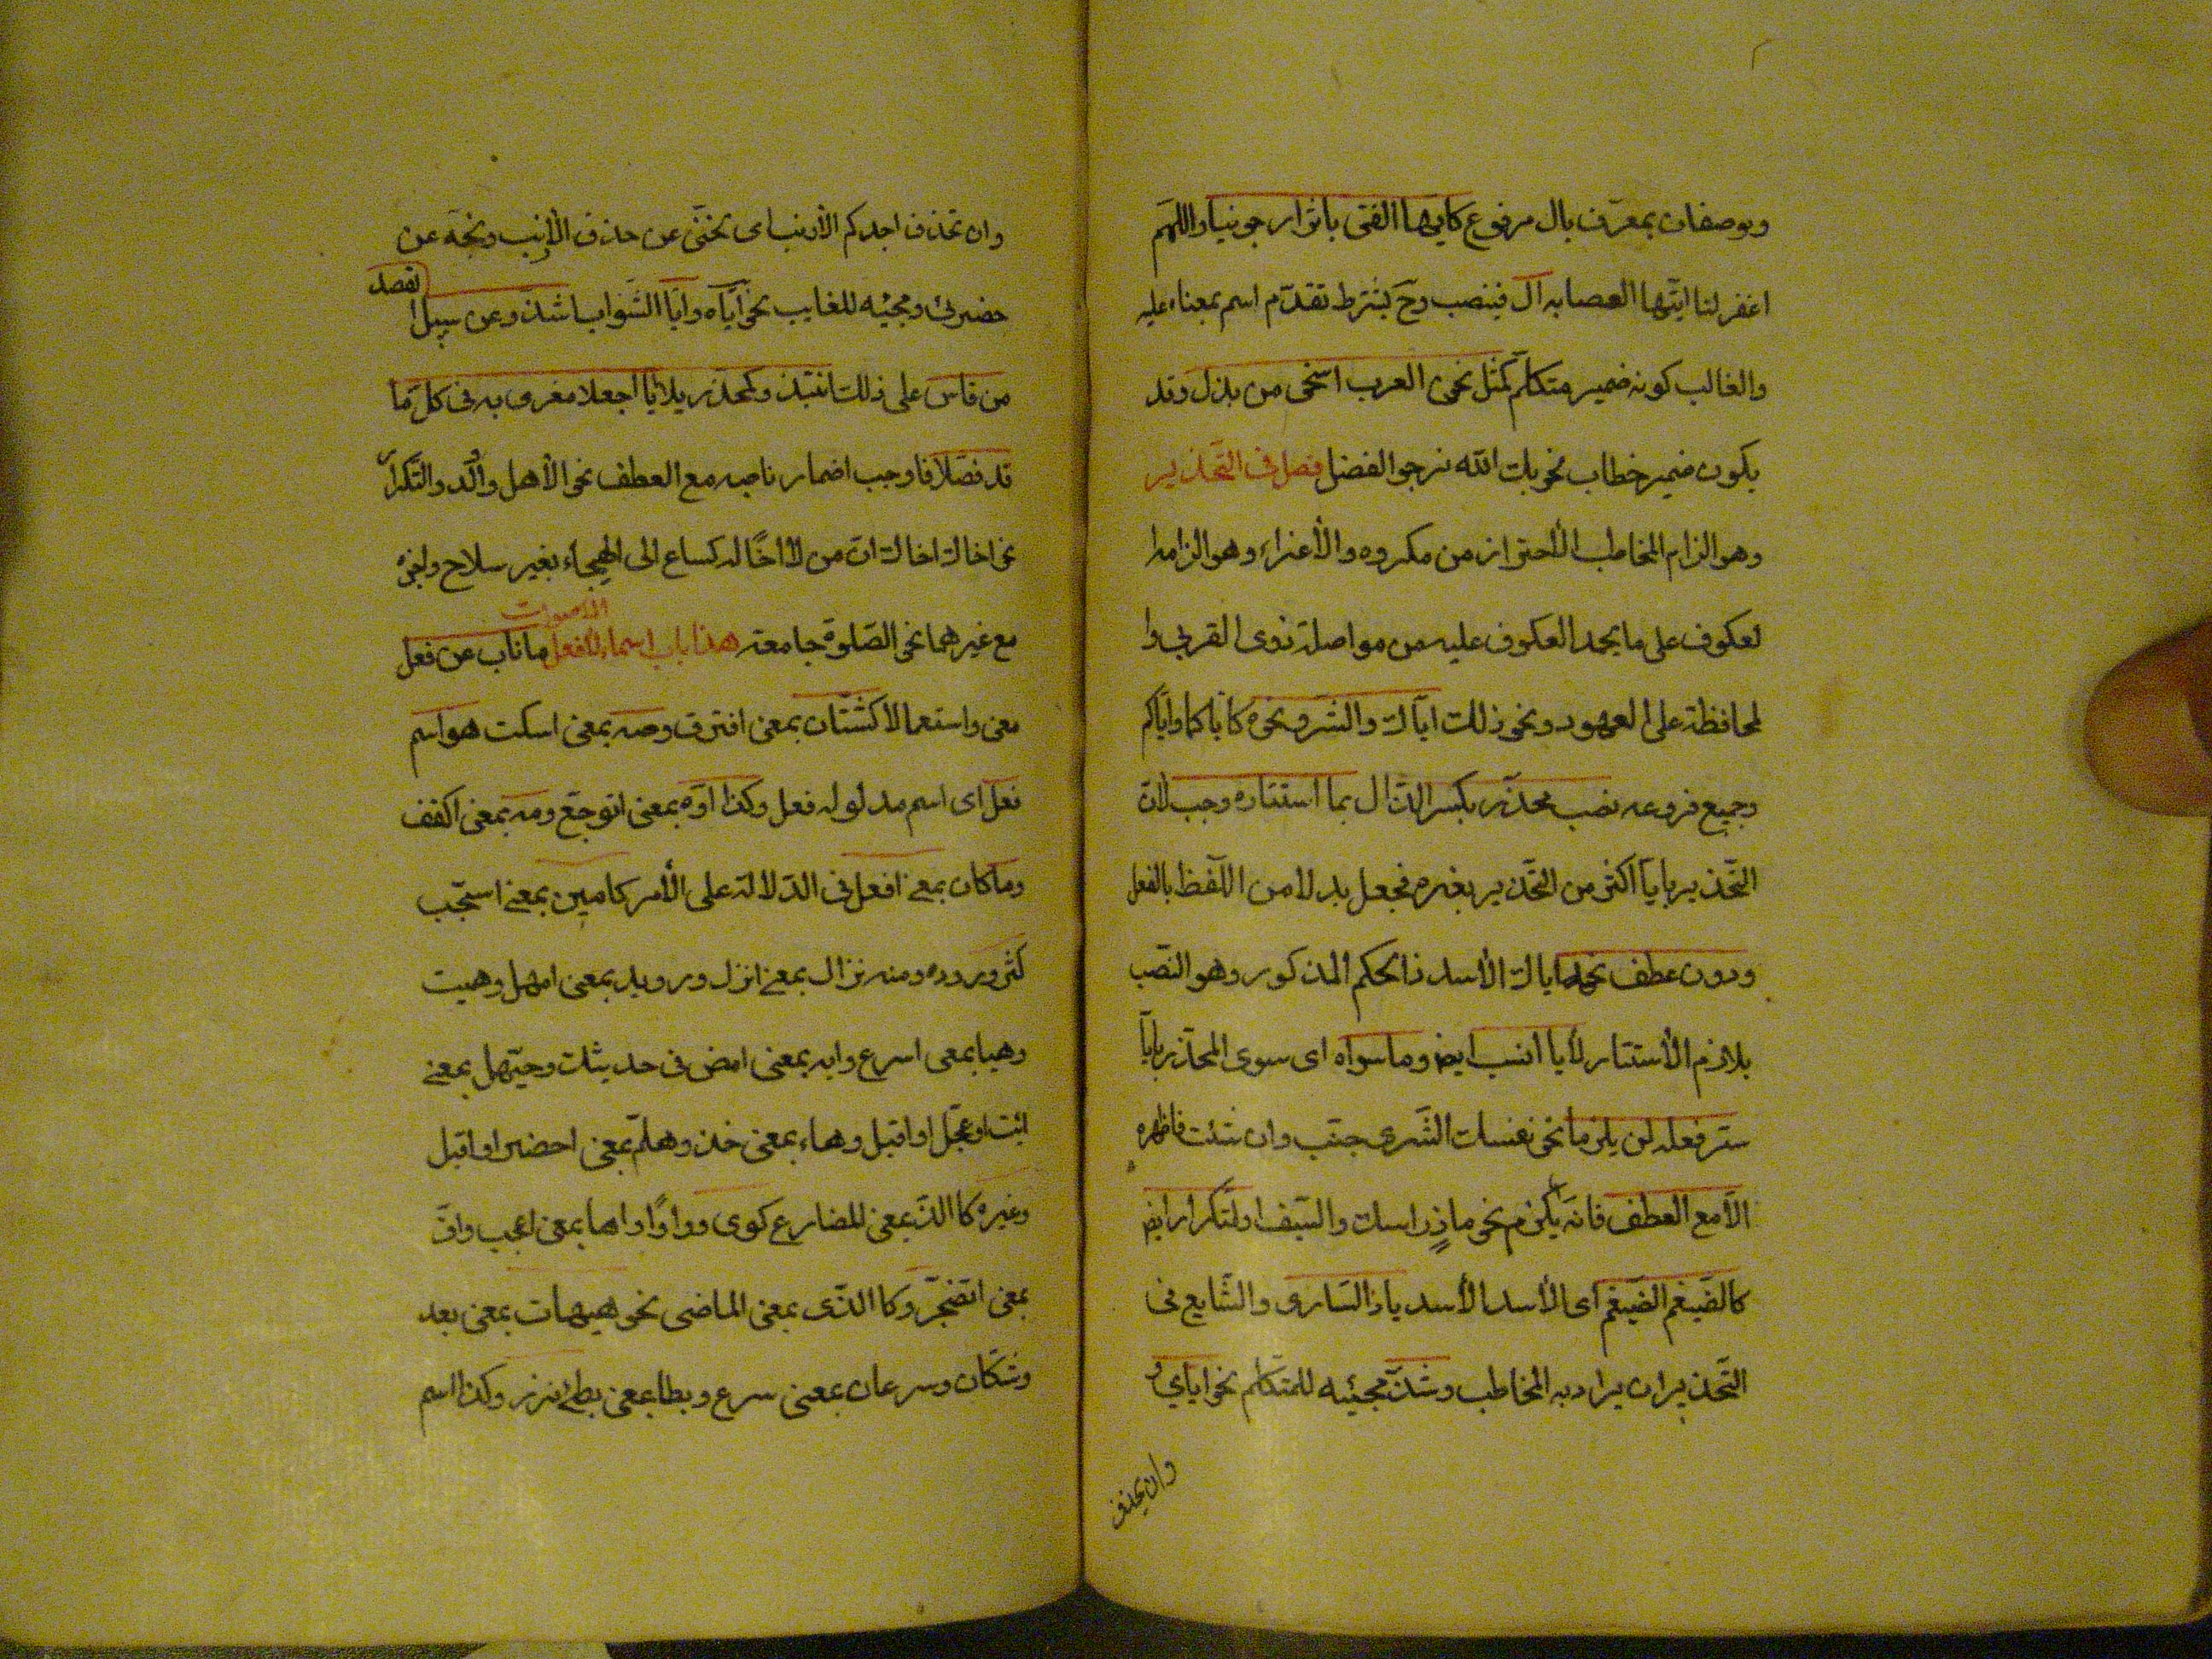 ويوصفان بمعرّف بال مرفوع كايّها الفتى باثر ارجونيا واللهمّ
اغفر لنا ايّتها العصابه ال فينصب وح يشترط تقدّم اسم بمعناه عليه
والغالب كونه ضمير متكلّم كمثل نحن العرب اسخى من بذل وقد
يكون ضمير خطاب نحو بك الله نرجو الفضل فصل فى التحذير
وهو الزام المخاطب الأحتراز من مكروه والأغراء وهو الزامه ا
لعكوف على ما يحمد العكوف عليه من مواصلة ذوى القربى وا
لمحافظة على العهود ونحو ذلك ايّاك والشر ونحوه كاياكما واياكم
وجميع فروعه نصب محذّر بكسر الذّال بما استتاره وجب لانّ
التّحذير بايّا اكثر من التّحذير بغيره فجعل بدلا من اللّفظ بالفعل
ودون عطف نحو اياك الأسد ذا الحكم المذكور وهو النّصب
بلازم الأستتار لأيا انسب ايض وما سواه اى سوى المحذّر بايّا
ستر فعله لن يلزما نحو نفسك الشّر اى جنّب وان شئت فاظهره
الّا مع العطف فانّه يلزم نحو ماز راسك والسّيف او لتكرار ايض
كالضّيغم الضّيغم اى الأسد الأسد يا ذا السّارى والشّايع فى
التّحذير ان يراد به المخاطب وشذّ مجيئه للمتكلّم نحو اياي و
وان يحذف
وان تحذف احدكم الأرنب اى نحّنى عن حذف الأرنب ونحّه عن
حضرتى ومجيئه للغايب نحو ايّاه وايّا الشّواب اشذّ وعن سبيل ا
لقصد
من قاس على ذلك انتبذ وكمحذّر بلا ايّا اجعلا مغرى به فى كلّ ما
قد فصّلا فاوجب اضمار ناصبه مع العطف نحو الأهل والولد والتّكرار
نحو اخاك اخاك انّ من لا اخًا له كساع الى الهيجاء بغير سلاح واجزه
مع غيرهما نحو الصّلوة جامعة هذا باب اسماء الأفعال ما ناب عن فعل
الاصوات
معنى واستعمالا كشتّان بمعنى افترق وصه بمعنى اسكت هو اسم
فعل اى اسم مدلوله فعل وكذا اوّه بمعنى اتوجّع ومه بمعنى اكفف
وما كان بمعنى افعل فى الدّلالة على الأمر كامين بمعنى استجب
كثر وروده ومنه نزال بمعنى انزل ورويد بمعنى امهل وهيت
وهيا بمعنى اسرع وايه بمعنى امض فى حديثك وحيّهل بمعنى
ائت او عجّل او اقبل وهاء بمعنى خذ وهلمّ بمعنى احضر او اقبل
وغيره كا الذّى بمعنى المضارع كوى وواوًا واها بمعنى اعجب وافّ
بمعنى اتضجّر وكا الذّى بمعنى الماضى نحو هيهات بمعنى بعد
وشكان وسرعان بمعنى سرع وبطا بمعنى بطئ نزر وكذا اسم